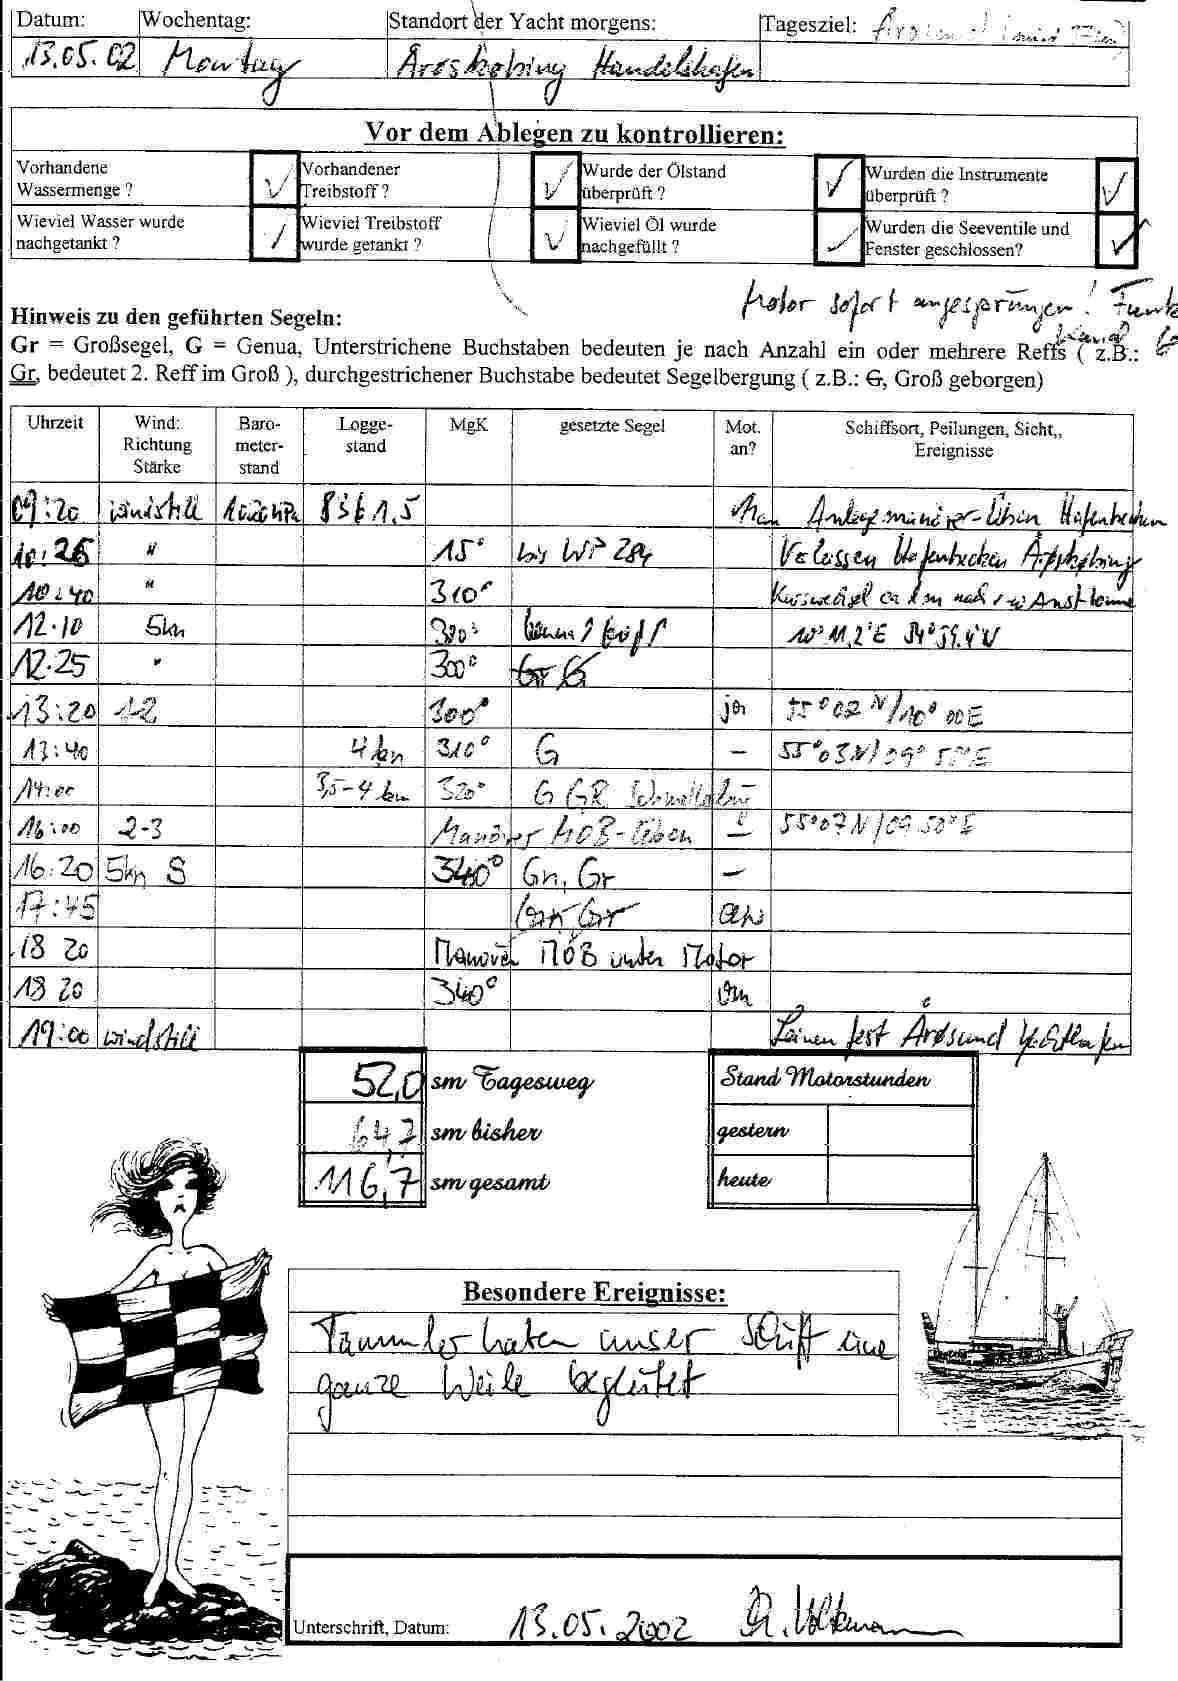 Datum: Wochentag: Standort der Yacht morgens: Tagesziel:
13.05.02 Montag Ärösköbing Handelshafen
Vor dem Ablegen zu kontrollieren:
Vorhandene Wassermenge ? Vorhandener Treibstoff ? Wurde der Ölstand überprüft ? Wurden die Instrumente überprüft ?
Wieviel Wasser wurde nachgetankt ? Wieviel Treibstoff wurde getankt ? Wieviel Öl wurde nachgefüllt ? Wurden die Seeventile und Fenster geschlossen?
Motor sofort angesprungen! Funk
Kanal
Hinweis zu den geführten Segeln:
Gr = Großsegel, G = Genua, Unterstrichene Buchstaben bedeuten je nach Anzahl ein oder mehrere Reffs ( z.B.:
Gr, bedeutet 2. Reff im Groß ), durchgestrichener Buchstabe bedeutet Segelbergung ( z.B.: G, Groß geborgen)
Uhrzeit Wind: Richtung Stärke Baro-meter-stand Logge-stand MgK gesetzte Segel Mot. an? Schiffsort, Peilungen, Sicht,, Ereignisse
09:20 windstill 1020 HPa 8361,5 Anlegemanöver-Üben Hafenbecken
10:26 " 15° bis WP 284 Verlassen Hafenbecken Ärösköbing
10:40 " 310° Kurswechsel
12.10 5kn 320° 10° 11,2'E 54° 59.4'N
12.25 " 300° Gr G
13:20 1-2 300° ja 55° 02 N/10° 00E
13:40 4 kn 310° G - 55° 03N/09°
14:00 3,5-4 kn 320° G GR
16:00 2-3 Manöver MOB-Üben - 55°07N/09°50°E
16:20 5kn S 340° Gn, Gr -
17:45 Gn Gr an
18 20 Manöver MOB unter Motor
18 20 340° an
19:00 windstill Leinen fest Årøsund Yachthafen
52,0 sm Tagesweg
64,7 sm bisher
116,7 sm gesamt
Stand Motorstunden
gestern
heute
Besondere Ereignisse:
Tümmler haben unser Schiff eine
ganze Weile begleitet
Unterschrift, Datum: 13.05.2002 Volkmann